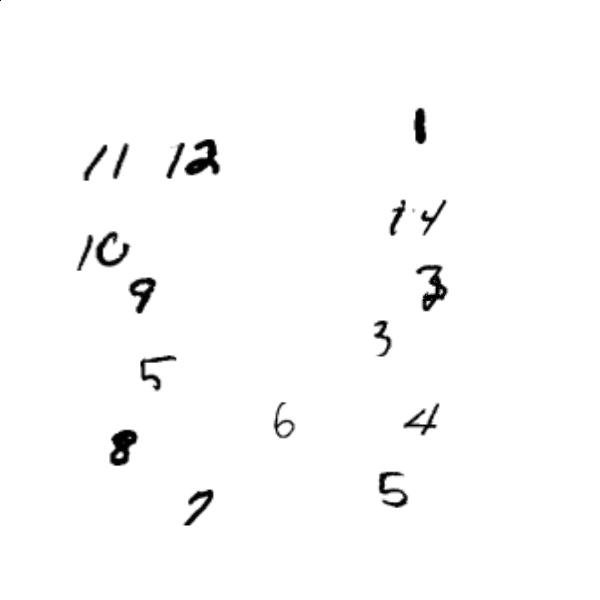 1
11 12
14
10
9
3
5
6 4
8
5
7